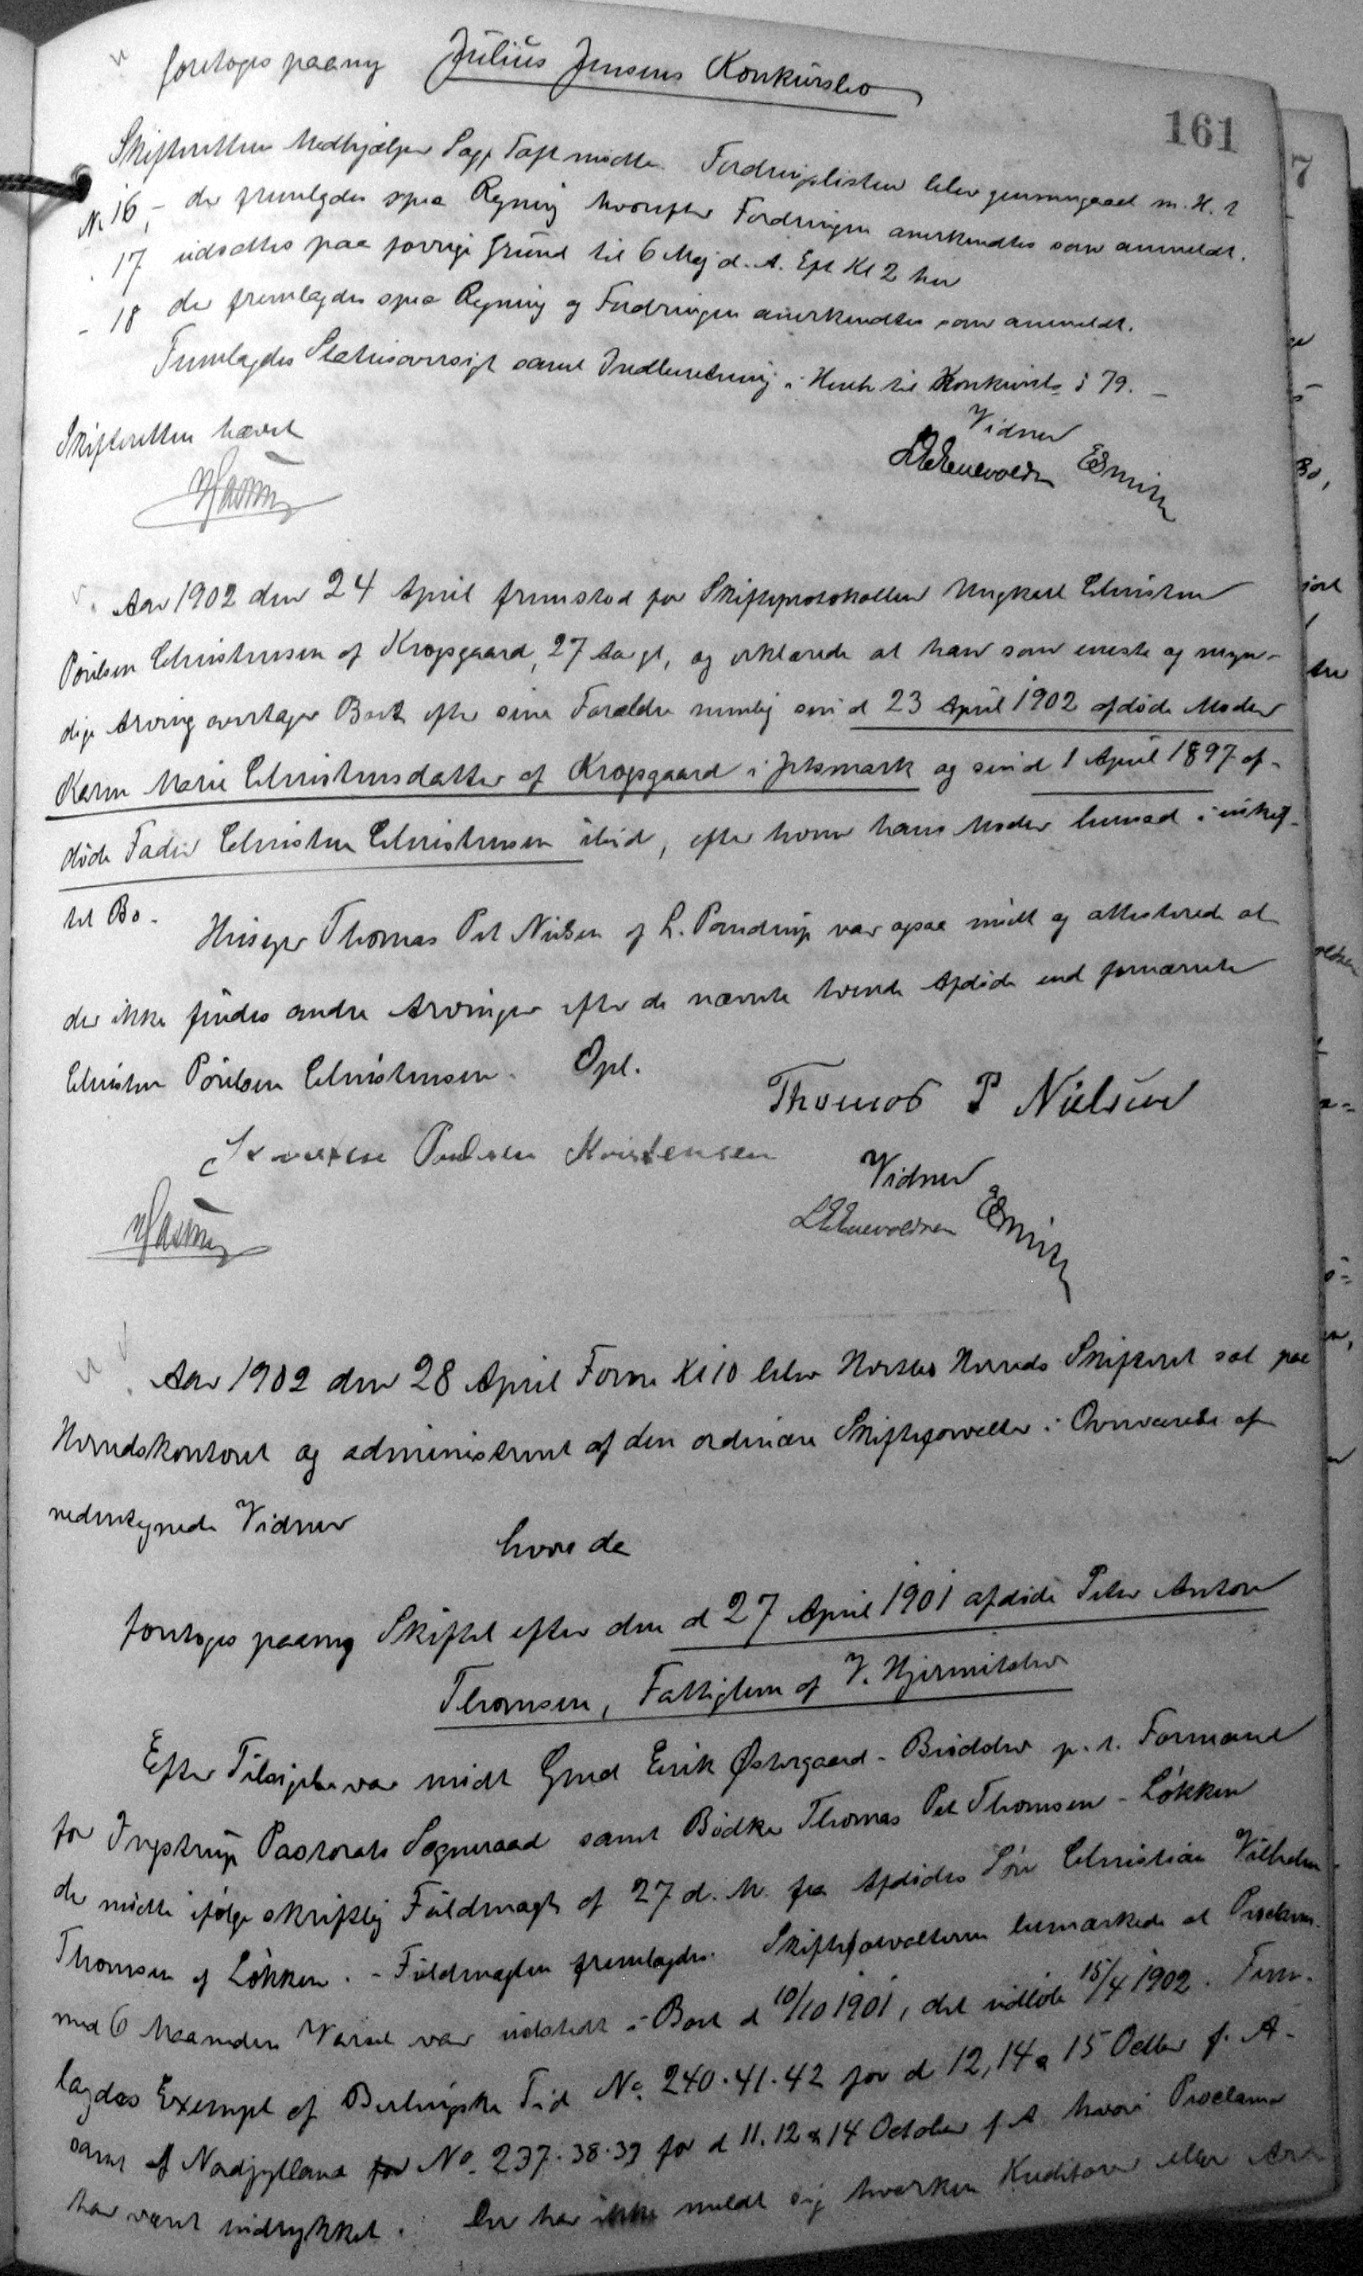 161
foretoges paany Julius Jensens Konkursbo
Skifterettens Medhjælper Sagf. Toft mødte. Fordringslisten blev gennemgaaet m. H. t
No 16, - der fremlagdes spec Regning hvorefter Fordringen anerkendtes som anmeldt.
- 17 udsattes paa forrige Grund til 6 Maj d. A. Eft Kl 2 her
- 18 der fremlagdes spec Regning og Fordringen anerkendtes som anmeldt.
Fremlagdes Statusoversigt samt Indberetning i Henh til Konkursl. § 79. -
Skifteretten hævet
Vidner
Aar 1902 den 24 April fremstod for Skifteprotokollen Ungkarl Christen
Poulsen Christensen af Kragsgaard, 27 Aar gl, og erklærede at han som eneste og myn-
dige Arving overtager Boet efter sine Forældre nemlig sin d 23 April 1902 afdøde Moder
Karen Marie Christensdatter af Kragsgaard i Jetsmark og sin d 1 April 1897 af-
døde Fader Christen Christensen ibid, efter hvem hans Moder hensad i uskif-
tet Bo.
Husejer Thomas Pet Nielsen af L. Pandrup var ogsaa mødt og attesterede at
der ikke findes andre Arvinger efter de nævnte tvende Afdøde end fornævnte
Christen Poulsen Christensen. Opl.
Thomas P Nielsen
Poulsen Kristensen
Vidner
Aar 1902 den 28 April Form Kl 10 blev Hvetbo Herreds Skifteret sat paa
Herredskontoret og administreret af den ordinære Skifteforvalter i Overværelse af
undertegnede Vidner
hvorda
foretoges paany Skiftet efter den d 27 April 1901 afdøde Peter Anton
Thomsen, Fattiglem af V. Hjermitslev
Efter Tilsigelse var mødt Grmd Erik Østergaard - Brødslev p. t. Formand
for Ingstrup Pastorats Sogneraad samt Bødker Thomas Pet Thomsen - Løkken
der mødte ifølge skriftlig Fuldmagt af 27 d. M. fra Afdødes Søn Christian Vilhelm
Thomsen af Løkken. - Fuldmagten fremlagdes. Skifteforvalteren bemærkede at Proclama
med 6 Maaneders Varsel var udstedt i Boet d 10/10 1901, det udløb 15/4 1902. Frem-
lagdes Exempl af Berlingske Tid No. 240. 41. 42 for d 12, 14 & 15 Octbr f. A.
samt af Nordjylland No. 237. 38. 39 for d 11. 12 & 14 October f A hvori Proclama
har været indrykket. Der har ikke meldt sig hverken Kreditorer eller Arv